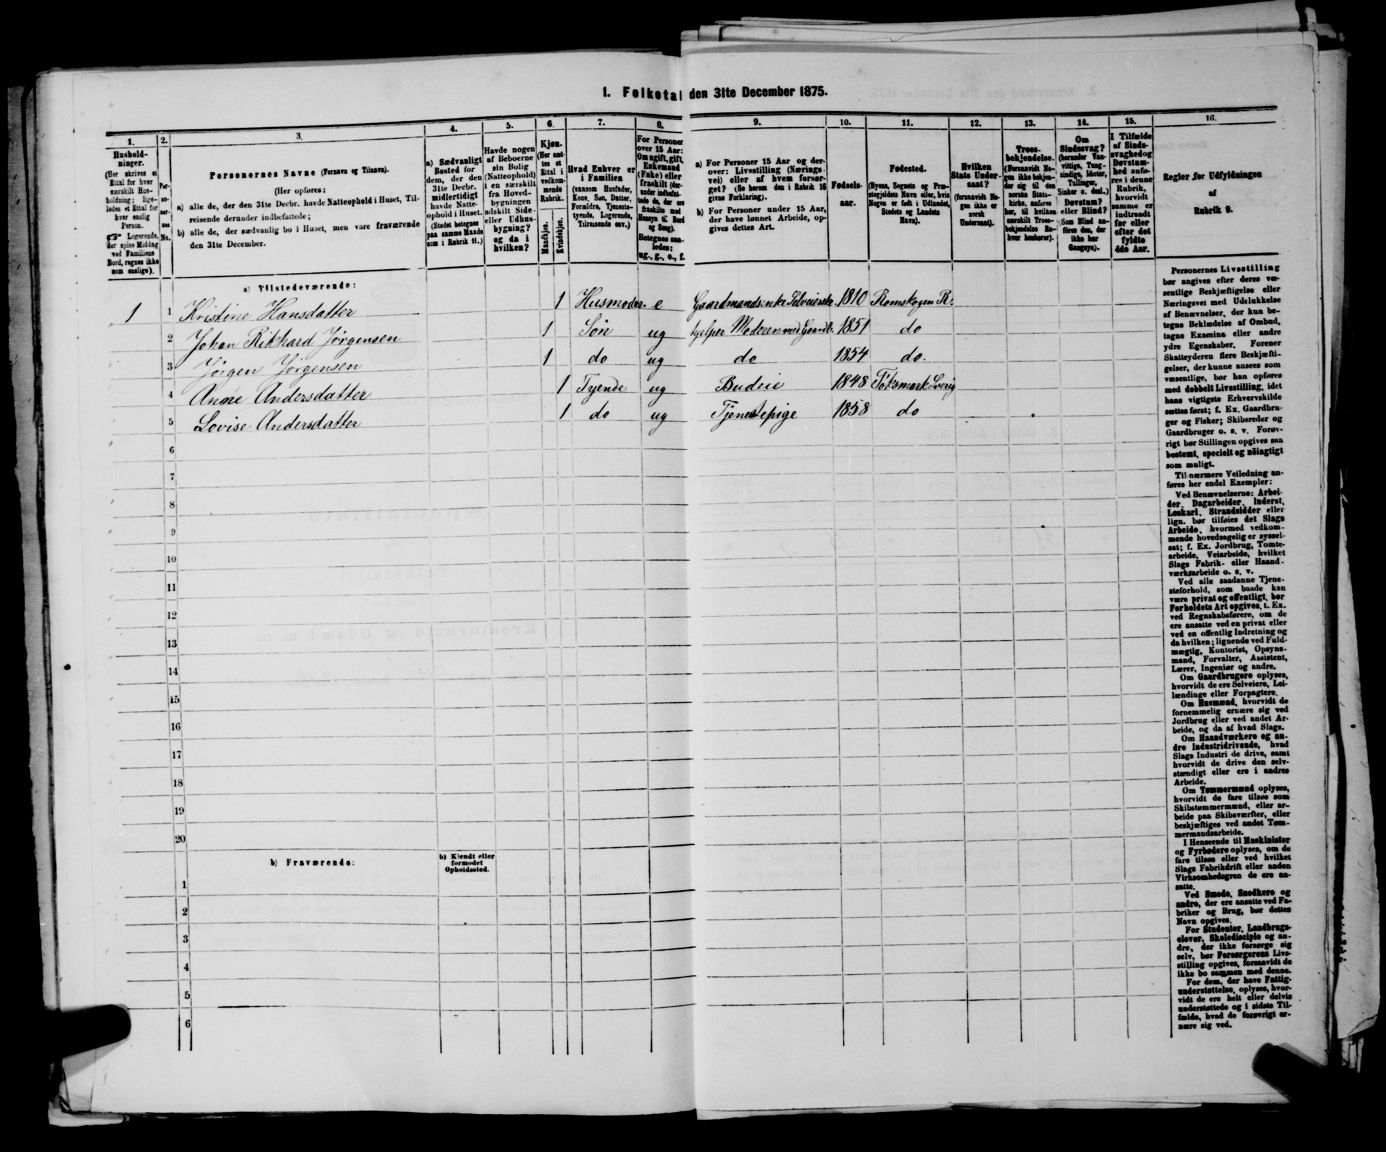 1. Folketal den 31te December 1875.
1. 2. 3. 4. 5. 6. 7. 8. 9. 10. 11. 12. 13. 14. 15. 16.
Personernes Navne (Fornavn og Tilnavn).
(Her opføres:
a) alle de, der den 31te Decbr. havde Natteophold i Huset, Til-
reisende derunder indbefattede;
b) alle de, der sædvanlig bo i Huset, men vare fraværende
den 31te December.
a) Sædvanligt
Bosted for
dem, der den
31te Decbr.
midlertidigt
havde Natte-
ophold i Huset.
(Stedet betegnes
paa samme Maade
som i Rubrik 11.)
Havde nogen
af Beboerne
sin Bolig
(Natteophold)
i en særskilt
fra Hoved-
bygningen
adskilt Side-
eller Udhus-
bygning?
og da i
hvilken?
Kjøn.
Mandkjøn.
Kvindekjøn.
Hvad Enhver er
i Familien
(saasom Husfader,
Kone, Søn, Datter,
Forældre, Tjeneste-
tyende, Logerende,
Tilreisende osv.)
For Personer
over 15 Aar:
Om ugift, gift,
Enkemand
(Enke) eller
fraskilt
ug., g., e., f.
a) For Personer 15 Aar og der-
over: Livsstilling (Nærings-
vei) eller af hvem forsør-
get? (Se herom den i Rubrik 16
givne Forklaring).
b) For Personer under 15 Aar,
der have lønnet Arbeide, op-
gives dettes Art.
Fødsels-
aar.
Fødested.
(Byens, Sognets og Præ-
stegjeldets Navn eller, hvis
Nogen er født i Udlandet,
Stedets og Landets
Navn).
Hvilken
Stats Under-
saat?
(forsaavidt No-
gen ikke er
norsk
Undersaat).
Troes-
bekjendelse.
Om
Sindssvag?
Døvstum?
eller Blind?
I Tilfælde
af Sinds-
svaghed og
Døvstum-
hed anfø-
res i denne
Rubrik,
hvorvidt
samme er
indtraadt
før eller
efter det
fyldte
4de Aar.
Regler for Udfyldningen
af
Rubrik 9.
a) Tilstedeværende:
1 1 Kristine Hansdatter 1 Husmoder e Gaardmands enke Selveierske 1810 Romskogen
2 Johan Rikhard Jørgensen 1 Søn ug hjelper Moderen med Gaardb. 1851 do
3 Jørgen Jørgensen 1 do ug do 1854 do.
4 Anne Andersdatter 1 Tyende ug Budeie 1848 Töksmark Sverig
5 Lovise Andersdatter 1 do ug Tjenestepige 1858 do
6
7
8
9
10
11
12
13
14
15
16
17
18
19
20
b) Fraværende:
b) Kjendt eller
formodet
Opholdssted.
1
2
3
4
5
6
Personernes Livsstilling
bør angives efter deres væ-
sentlige Beskjæftigelse eller
Næringsvei med Udelukkelse
af Benævnelser, der kun be-
tegne Bekledelse af Ombud,
tagne Examina eller andre
ydre Egenskaber. Forener
Skatteyderen flere Beskjæfti-
gelser, der kunne ansees som
væsentlige, bør han opføres
med dobbelt Livsstilling, idet
hans vigtigste Erhvervskilde
sættes først; f. Ex. Gaardbru-
ger og Fisker; Skibsreder og
Gaardbruger o. s. v. Forøv-
rigt bør Stillingen opgives saa
bestemt, specielt og nøiagtigt
som muligt.
Til nærmere Veiledning an-
føres her endel Exempler:
Ved Benævnelserne: Arbei-
der, Dagarbeider, Inderst,
Løskarl, Strandsidder eller
lign. bør tilføies det Slags
Arbeide, hvormed vedkom-
mende hovedsagelig er syssel-
sat; f. Ex. Jordbrug, Tomte-
arbeide, Veiarbeide, hvilket
Slags Fabrik- eller Haand-
værksarbeide o. s. v.
Ved alle saadanne Tjene-
steforhold, som baade kan
være privat og offentligt, bør
Forholdets Art opgives, t. Ex.
ved Regnskabsførere, om de
ere ansatte ved en privat eller
ved en offentlig Indretning og
da hvilken; lignende ved Fuld-
mægtig, Kontorist, Opsyns-
mand, Forvalter, Assistent,
Lærer, Ingeniør og andre.
Om Gaardbrugere oplyses,
hvorvidt de ere Selveiere, Lei-
lændinge eller Forpagtere.
Om Husmænd, hvorvidt de
fornemmelig ernære sig ved
Jordbrug eller ved andet Ar-
beide, og da af hvad Slags.
Om Haandværkere og an-
dre Industridrivende, hvad
Slags Industri de drive, samt
hvorvidt de drive den selv-
stændigt eller ere i andres
Arbeide.
Om Tømmermænd oplyses,
hvorvidt de fare tilsøs som
Skibstømmermænd, eller ar-
beide paa Skibsværfter, eller
beskjæftiges ved andet Tøm-
mermandsarbeide.
I Henseende til Maskinister
og Fyrbødere oplyses, om de
fare tilsøs eller ved hvilket
Slags Fabrikdrift eller anden
Virksomhedsgren de ere an-
satte.
Ved Smede, Snedkere og
andre, der ere ansatte ved Fa-
briker og Brug, bør dettes
Navn opgives.
For Studenter, Landbrugs-
elever, Skoledisciple og an-
dre, der ikke forsørge sig
selv, bør Forsørgerens Livs-
stilling opgives, forsaavidt de
ikke bo sammen med denne.
For dem, der have Fattig-
understøttelse, oplyses, hvor-
vidt de ere helt eller delvis
understøttede og i sidste Til-
fælde, hvad de forøvrigt er-
nære sig ved.